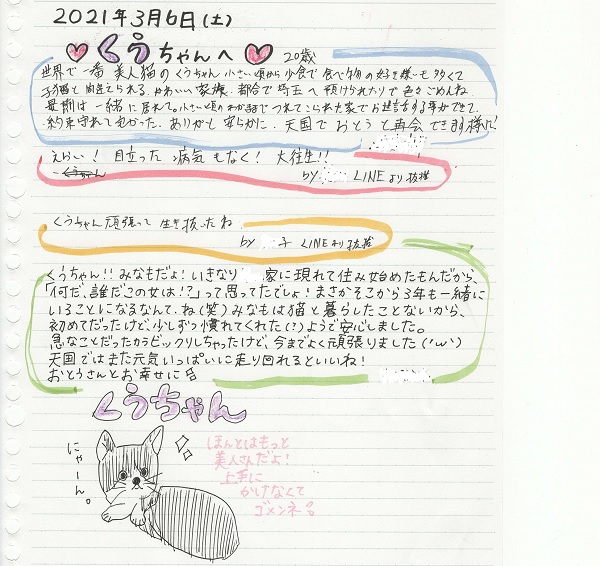 2021年3月6日(土)
くうちゃんへ 20歳
世界で一番 美人猫のくうちゃん 小さい頃から少食で食べ物の好き嫌いも多くて
子猫と間違えられる かわいい家族。都合で埼玉へ預けられたりで色々ごめんね
最期は一緒に居れて。小さい頃の
つれてこられた家でお世話する事ができて、
約束守れて良かった。ありがと 安らかに、天国でおとうと再会できます様に!
えらい! 目立った 病気もなく! 大往生!!
by LINEより抜擢
くうちゃん頑張って 生き抜ったね
by 子 LINEより抜擢
くうちゃん!!みなもだよ!いきなり 家に現れて住み始めたもんだから、
「何だ、誰だこの女は!?」って思ってたでしょ!まさかそこから3年も一緒に
いることになるなんて、ね(笑)みなもは猫と暮らしたことないから、
初めてだったけど、少しずつ慣れてくれた(?)ようで安心しました。
急なことだったからビックリしちゃったけど、今までよく頑張りました('ω')
天国ではまた元気いっぱいに走り回れるといいね!
おとうさんとお幸せに
くうちゃん
にゃーん。
ほんとはもっと
美人さんだよ!
上手に
かけなくて
ゴメンネ